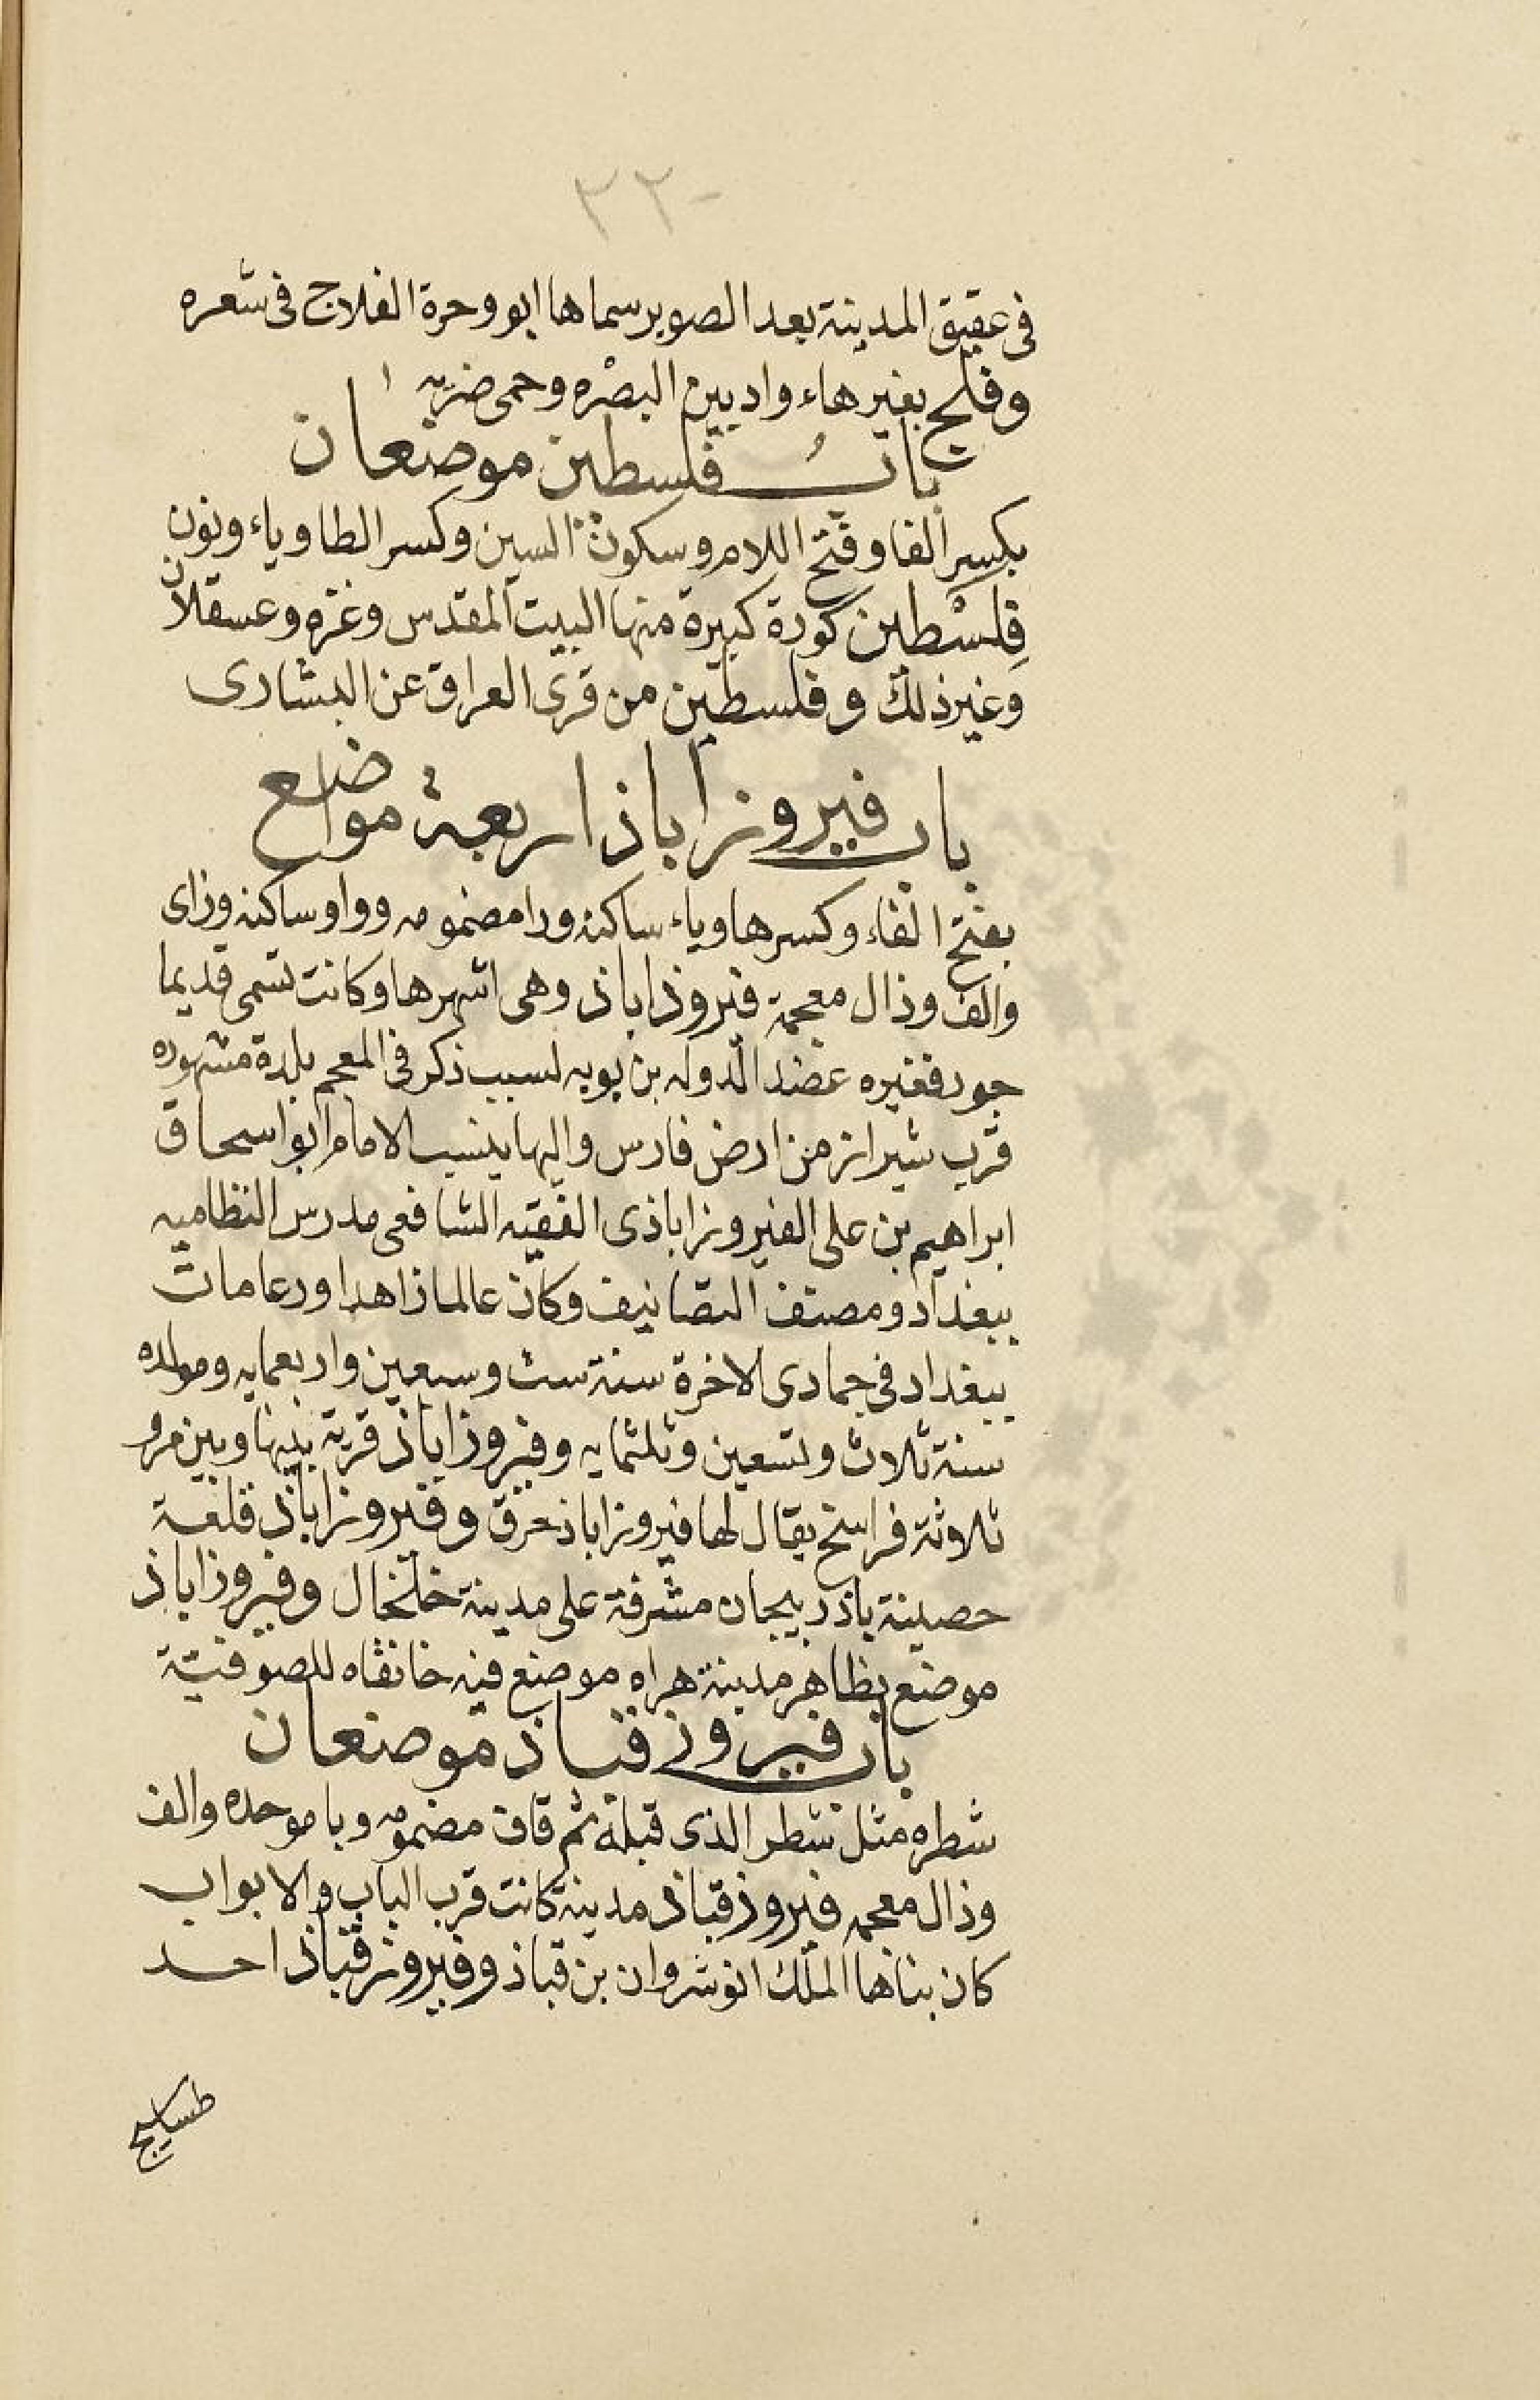 ٣٢٠
فى عقيق المدينة بعد الصوير سماها ابو وحرة الفلاج فى شعره
وفلج بغير هاء واد بين البصْره وحمى ضريه
باب فلسطين موضعان
بكسر الفا وفتح اللام وسكون السين وكسر الطا وياء ونون
فِلسْطين كورة كبيرة منها البيت المقدس وغزه وعسقلان
وغير ذلك وفلسطين من قرى العراق عن البشارى
باب فيروزاباذ اربعة مواضع
بفتح الفاء وكسرها وياء ساكنه ورا مضمومه وواو ساكنه وزاى
والف وذال معجمة فيروزاباذ وهى اشهرها وكانت تسمى قديما
جور فغيره عضد الدوله بن بويه لسبب ذكر فى المعجم بلدة مشهوره
قرب شيراز من ارض فارس واليها ينسب الامام ابو اسحاق
ابراهيم بن على الفيروزاباذى الفقيه الشافعى مدرس النظاميه
ببغداد ومصنف التصانيف وكان عالما زاهدا ورعا مات
ببغداد فى جمادى الاخرة سنة ست وسبعين واربعمايه ومولده
سنة ثلاث وتسعين وثلثمايه وفيروزاباذ قرية بينها وبين مرو
ثلاوثة فراسخ يقال لها فيروزاباذ خرق وفيروزاباذ قلعة
حصينة باذربيجان مشرفة على مدينة خلخال وفيروزاباذ
موضع بظاهر مدينة هراه موضع فيه خانقاه للصوفية
باب فيروز قباذ موضعان
شطره مثل شطر الذى قبله ثم قاف مضمومه وبا موحده والف
وذال معجمه فيروز قباذ مدينة كانت قرب الباب والابواب
كان بناها الملك انوشروان بن قباذ وفيروز قباذ احد
طساسيج